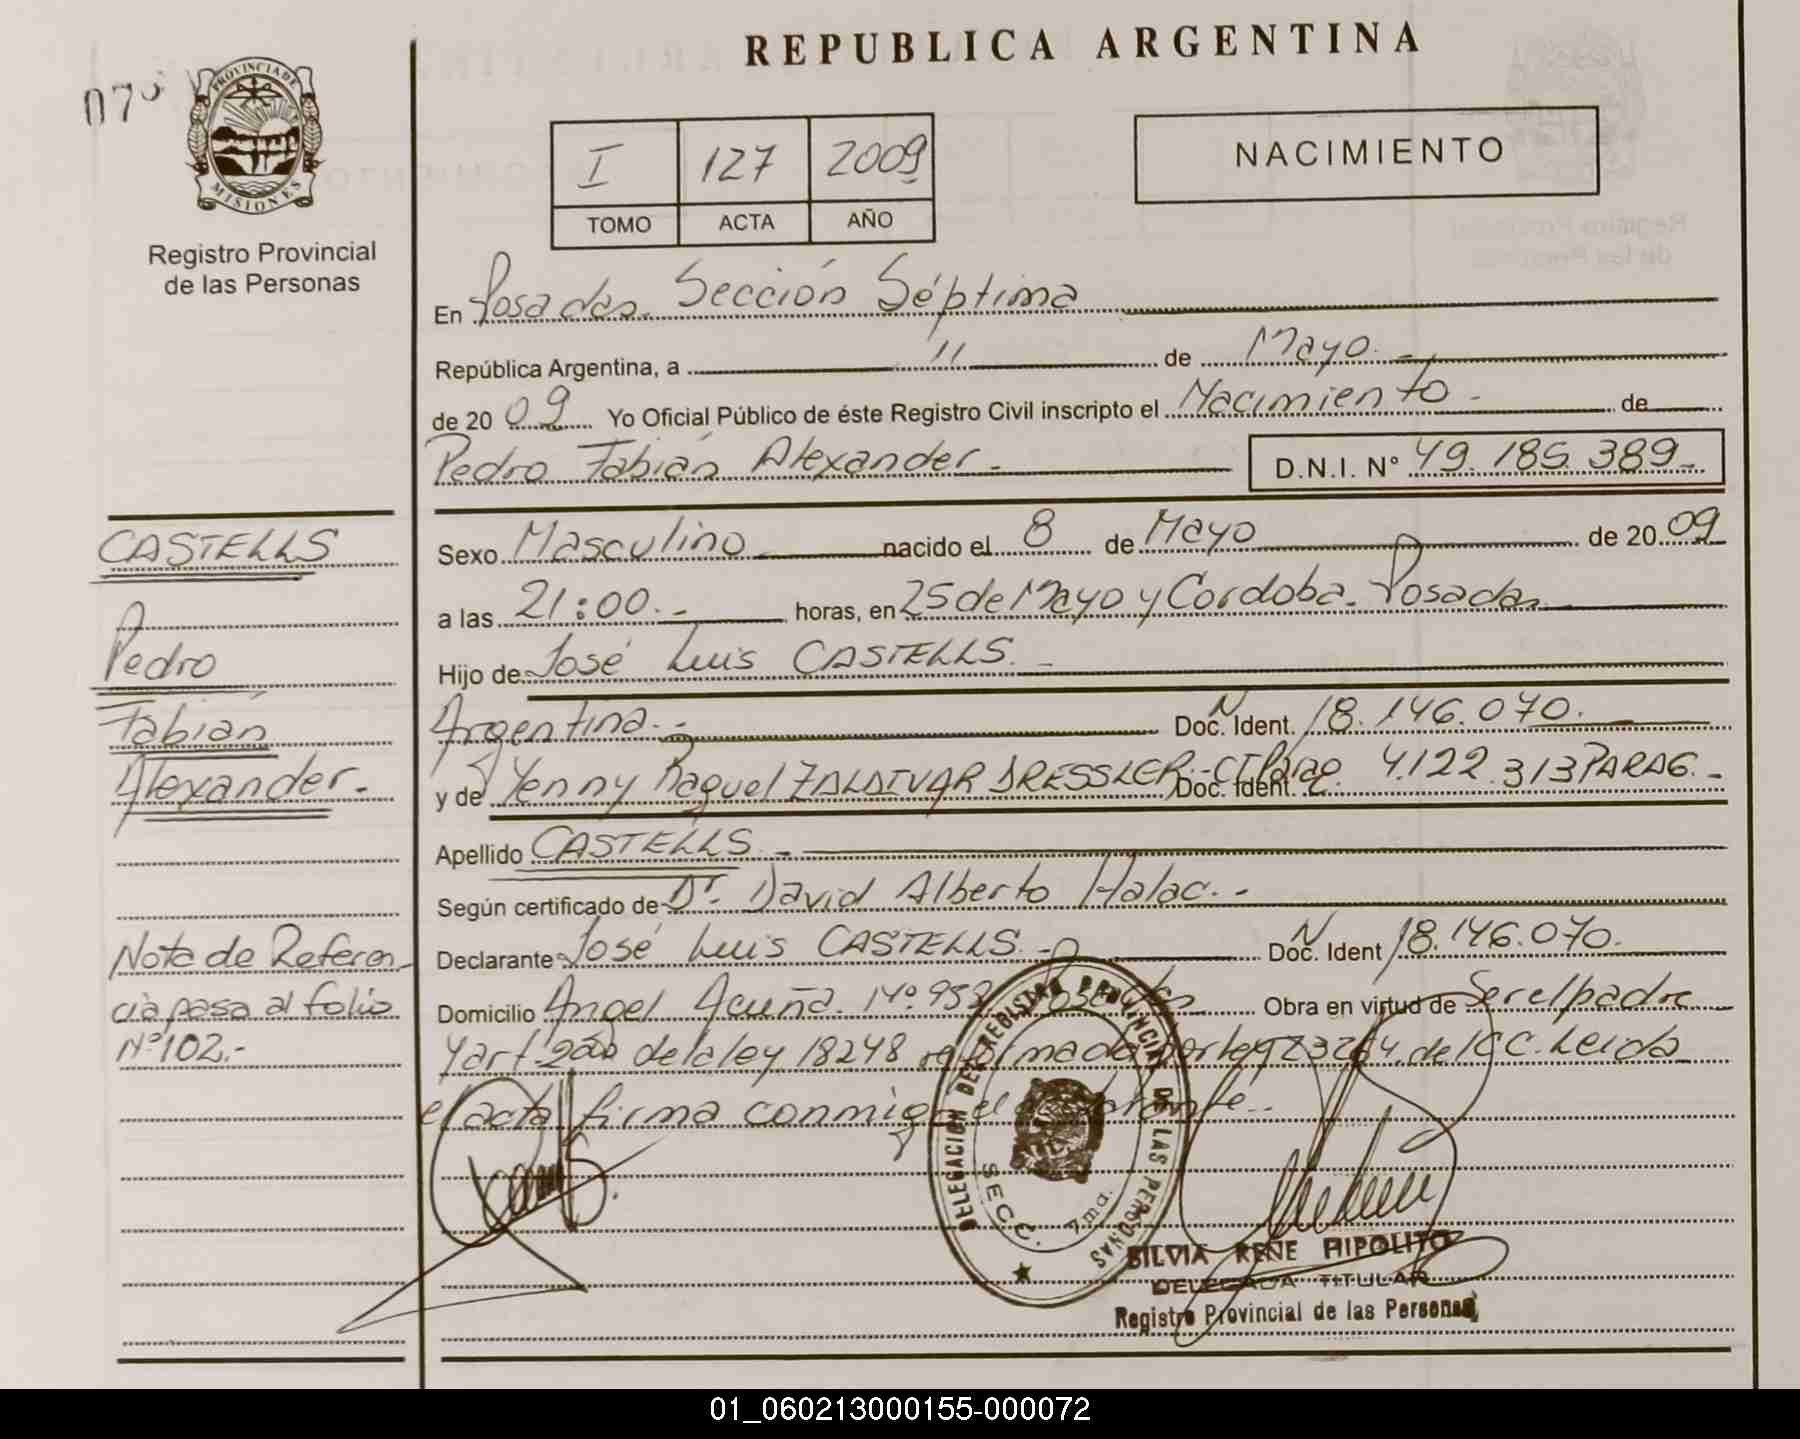 REPUBLICA ARGENTINA
07
PROVINCIA DE
MISIONES
Registro Provincial
de las Personas
I 127 2009
TOMO ACTA AÑO
NACIMIENTO
En Posadas. Sección Séptima
República Argentina, a 11 de Mayo.-
de 20 09 Yo Oficial Público de éste Registro Civil inscripto el Nacimiento - de
Pedro Fabián Alexander.- D.N.I. N° 49.185.389.-
Sexo Masculino nacido el 8 de Mayo de 20 09
a las 21:00.- horas, en 25 de Mayo y Cordoba. Posadas
Hijo de José Luis CASTELLS.-
Argentina.- Doc. Ident. N 18.146.070.
y de Yenny Raquel ZALDIVAR DRESSLER.- Doc. Ident. 4.122.313 PARAG.-
Apellido CASTELLS.-
Según certificado de Dr. David Alberto Halac.-
Declarante José Luis CASTELLS.- Doc. Ident N 18.146.070.
Domicilio Angel Acuña. N° 953 Posadas Obra en virtud de Ser el padre
y art 2do de la ley 18248 reformada por ley 23264 del C C. Leida
el acta firma conmigo el declarante.-
CASTELLS
Pedro
Fabián
Alexander.-
Nota de Referen
cia pasa al folio
N° 102.-
DELEGACION DEL REGISTRO PROVINCIAL DE LAS PERSONAS
SECC. 7ma.
SILVIA RENE HIPOLITO
DELEGADA TITULAR
Registro Provincial de las Personas
01_060213000155-000072